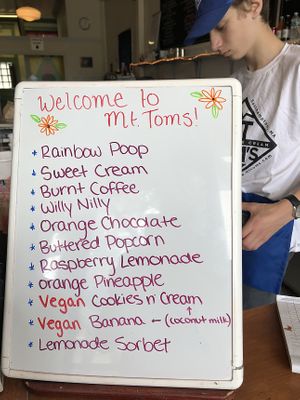 Welcome to
Mt. Toms!
* Rainbow Poop
* Sweet Cream
* Burnt Coffee
* Willy Nilly
* Orange Chocolate
* Buttered Popcorn
* Raspberry Lemonade
* Orange Pineapple
* Vegan Cookies n' Cream
* Vegan Banana ← (coconut milk)
* Lemonade Sorbet